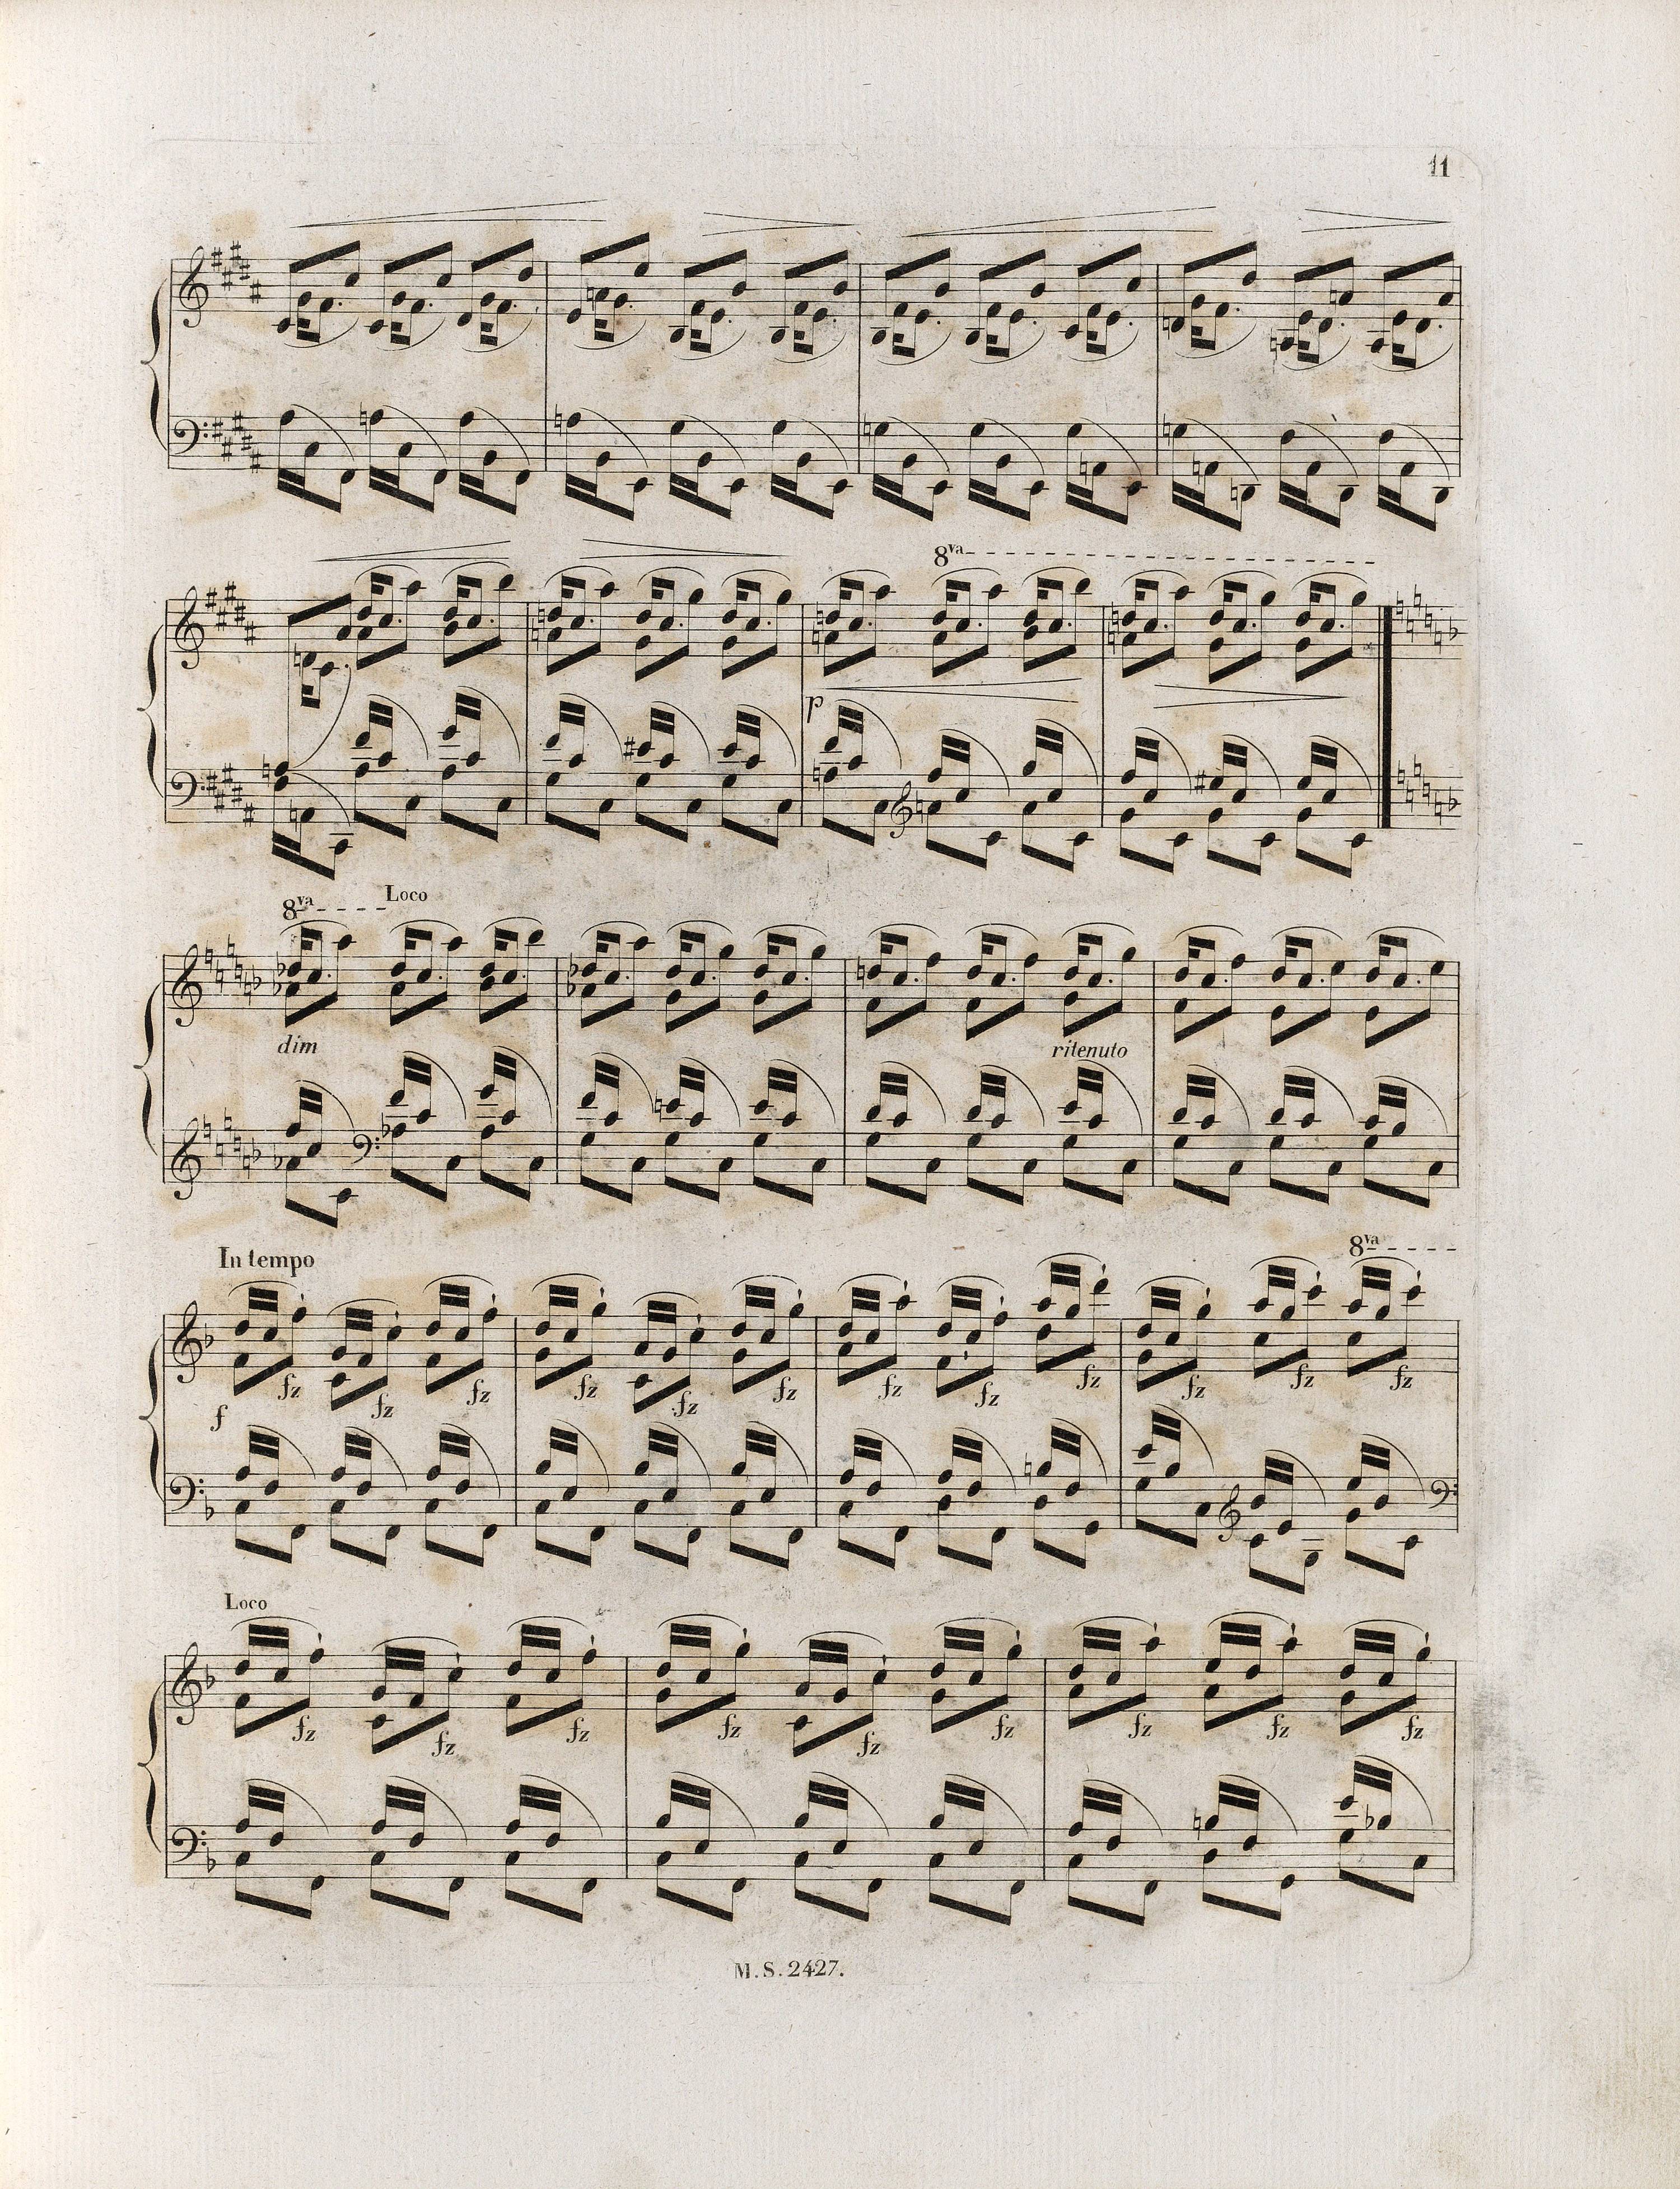 11
8va
p
8va
Loco
dim
ritenuto
In tempo
8va
fz fz fz fz fz fz fz fz fz fz fz fz
f
Loco
fz fz fz fz fz fz fz fz fz
M.S.2427.